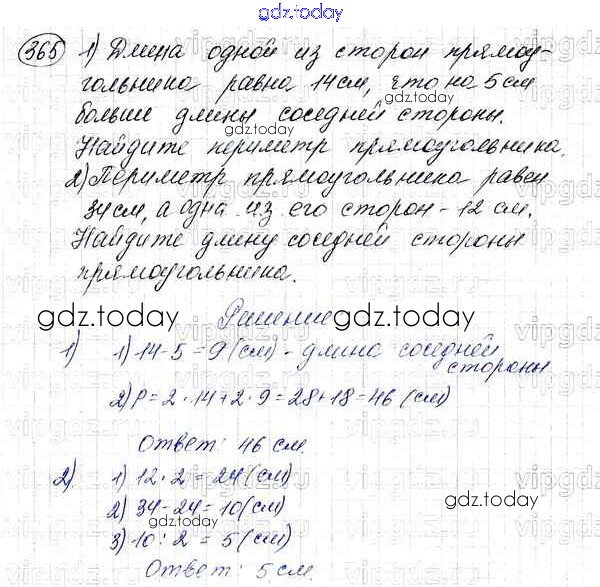 gdz.today
365 1) Длина одной из сторон прямоу-
гольника равна 14 см, что на 5 см
больше длины соседней стороны.
gdz.today
Найдите периметр прямоугольника.
2) Периметр прямоугольника равен
34 см, а одна из его сторон - 12 см.
Найдите длину соседней стороны
прямоугольника.
gdz.today
gdz.today
Решение
1) 1) 14 - 5 = 9 (см) - длина соседней
стороны
2) P = 2 · 14 + 2 · 9 = 28 + 18 = 46 (см)
Ответ: 46 см.
2) 1) 12 · 2 = 24 (см)
2) 34 - 24 = 10 (см)
gdz.today
gdz.today
3) 10 : 2 = 5 (см)
Ответ: 5 см.